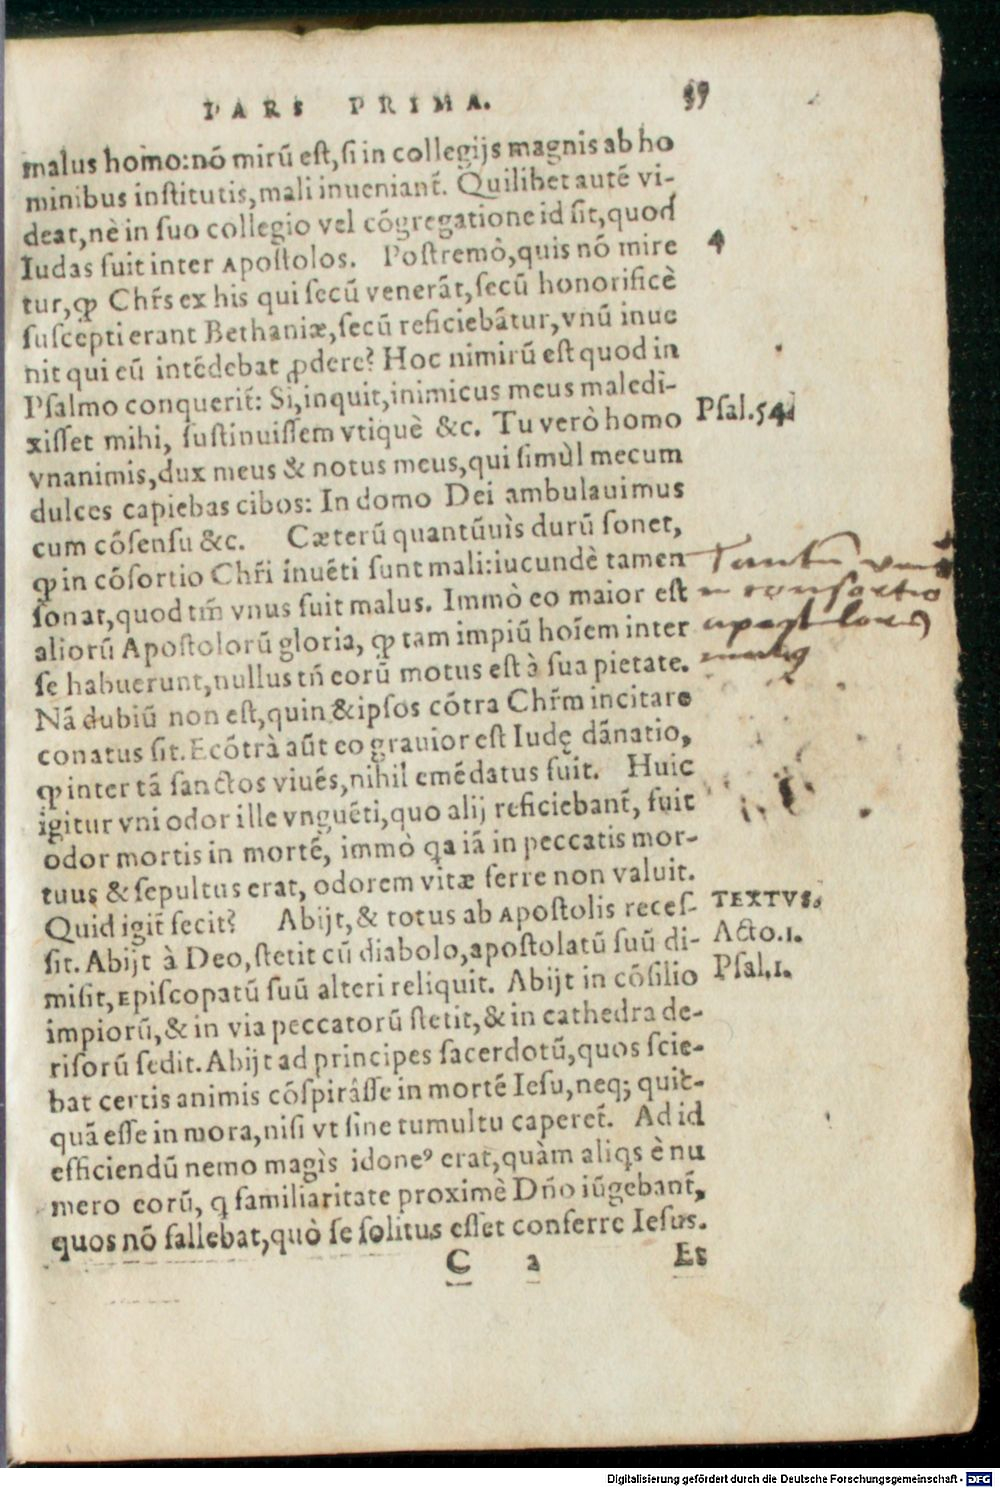 PARS PRIMA. 39
malus homo: nō mirū est, si in collegijs magnis ab ho
minibus institutis, mali inueniant̃. Quilibet autē vi-
deat, nè in suo collegio vel cōgregatione id sit, quod
Iudas fuit inter Apostolos. Postremò, quis nō mire
4
tur, ꝙ Chr̃s ex his qui secū venerāt, secū honorificè
suscepti erant Bethaniæ, secū reficiebātur, vnū inue
nit qui eū intēdebat ꝓdere? Hoc nimirū est quod in
Psalmo conquerit̃: Si, inquit, inimicus meus maledi-
xisset mihi, sustinuissem vtiquè &c. Tu verò homo
Psal.54.
vnanimis, dux meus & notus meus, qui simùl mecum
dulces capiebas cibos: In domo Dei ambulauimus
cum cōsensu &c. Cæterū quantūuìs durū sonet,
ꝙ in cōsortio Chr̃i inuēti sunt mali: iucundè tamen
sonat, quod tm̃ vnus fuit malus. Immò eo maior est
aliorū Apostolorū gloria, ꝙ tam impiū hoīem inter
se habuerunt, nullus tñ eorū motus est à sua pietate.
Tantū
in consortio
apostolorū
malus
Nā dubiū non est, quin & ipsos cōtra Chr̃m incitare
conatus sit. Ecōtrà aūt eo grauior est Iudę dānatio,
ꝙ inter tā sanctos viuēs, nihil emēdatus fuit. Huic
igitur vni odor ille vnguēti, quo alij reficiebant̃, fuit
odor mortis in mortē, immò qa iā in peccatis mor-
tuus & sepultus erat, odorem vitæ ferre non valuit.
Quid igit̃ fecit? Abijt, & totus ab Apostolis reces-
TEXTVS.
sit. Abijt à Deo, stetit cū diabolo, apostolatū suū di-
Acto.1.
misit, Episcopatū suū alteri reliquit. Abijt in cōsilio
Psal.1.
impiorū, & in via peccatorū stetit, & in cathedra de-
risorū sedit. Abijt ad principes sacerdotū, quos scie-
bat certis animis cōspirâsse in mortē Iesu, neq; quic-
quā esse in mora, nisi vt sine tumultu caperet̃. Ad id
efficiendū nemo magìs idoneꝰ erat, quàm aliqs è nu
mero eorū, q familiaritate proximè Dño iūgebant̃,
quos nō fallebat, quò se solitus esset conferre Iesus.
C 2 Et
Digitalisierung gefördert durch die Deutsche Forschungsgemeinschaft - DFG